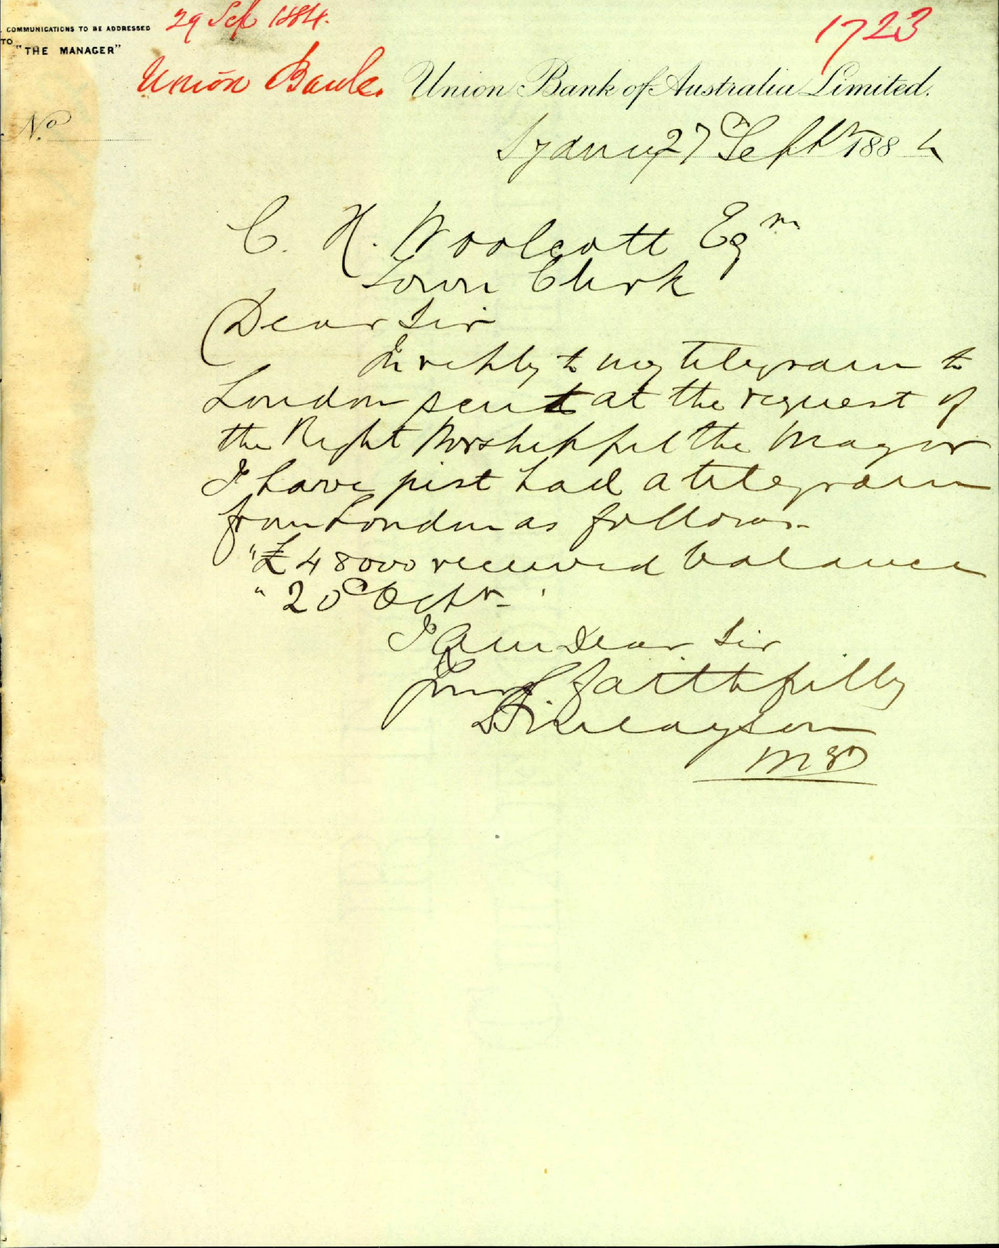 29 Sep 1884.
1723
COMMUNICATIONS TO BE ADDRESSED
TO "THE MANAGER"
Union Bank.
Union Bank of Australia Limited.
No
Sydney 27 Septr 1884
C. H. Woolcott Eqre
Town Clerk
Dear Sir
In reply to my telegram to
London sent at the request of
the Right Worshipful the Mayor
I have just had a telegram
from London as follows.
"£48000 received balance
"20 Octr"
I am Dear Sir
Yours faithfully
Finlayson